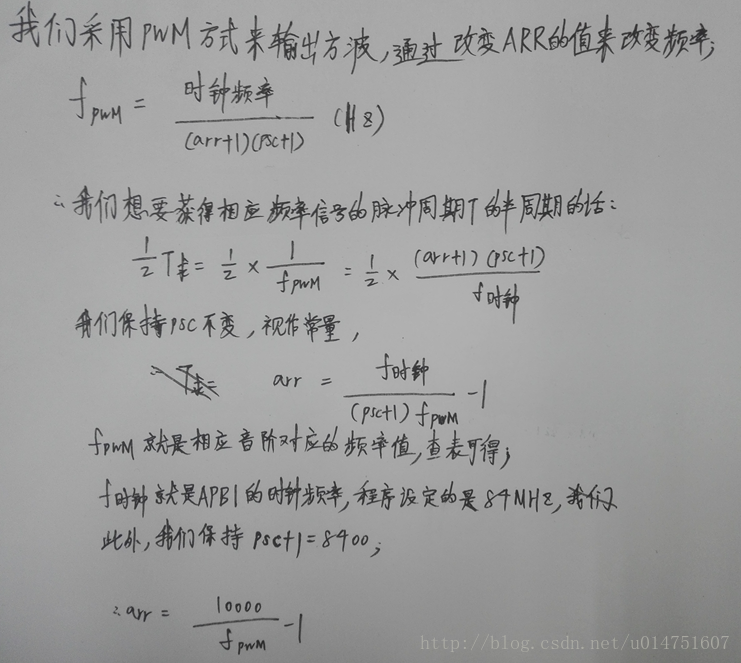 我们采用PWM方式来输出方波,通过改变ARR的值来改变频率;
f_PWM = 时钟频率 / (arr+1)(psc+1) (Hz)
∴我们想要获得相应频率信号的脉冲周期T的半周期的话:
1/2 T = 1/2 × 1/f_PWM = 1/2 × (arr+1)(psc+1) / f时钟
我们保持PSC不变,视作常量,
arr = f时钟 / (psc+1) f_PWM - 1
f_PWM就是相应音阶对应的频率值,查表可得;
f时钟就是APB1的时钟频率,程序设定的是84MHz,我们又
此外,我们保持 psc+1=8400;
∴arr = 10000 / f_PWM - 1
http://blog.csdn.net/u014751607